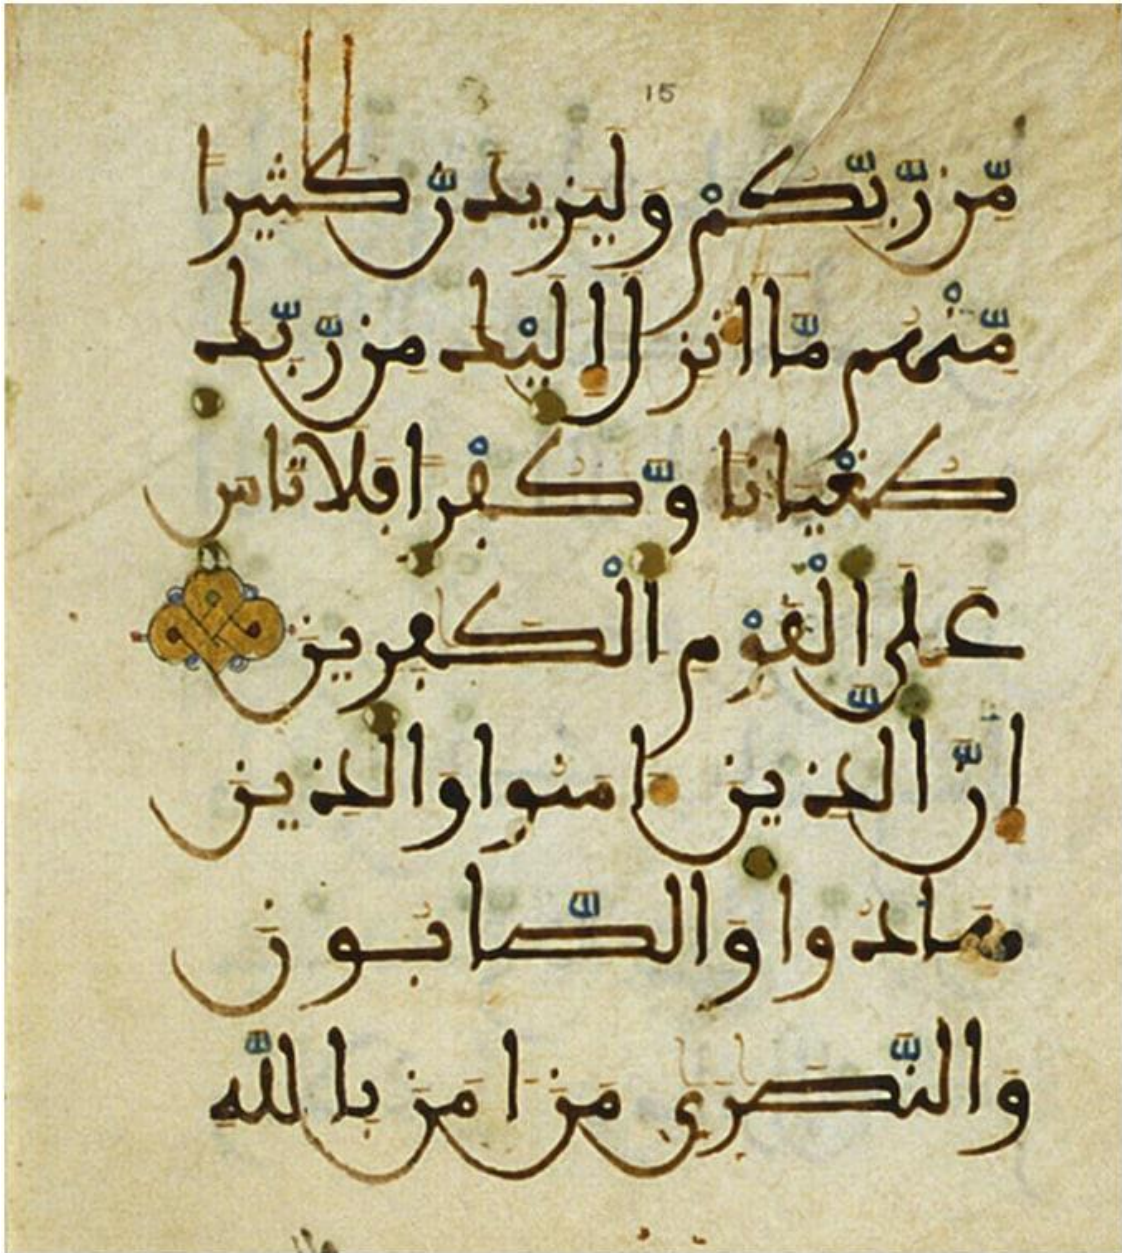 15
مِّن رَّبِّكُمْ وَلَيَزِيدَنَّ كَثِيرًا
مِّنْهُم مَّا أُنزِلَ إِلَيْكَ مِن رَّبِّكَ
طُغْيَانًا وَّكُفْرًا فَلَا تَاسَ
عَلَى الْقَوْمِ الْكَٰفِرِينَ
إِنَّ الَّذِينَ ءَامَنُوا وَالَّذِينَ
هَادُوا وَالصَّابُونَ
وَالنَّصَٰرَىٰ مَنَ ـامَنَ بِاللَّهِ